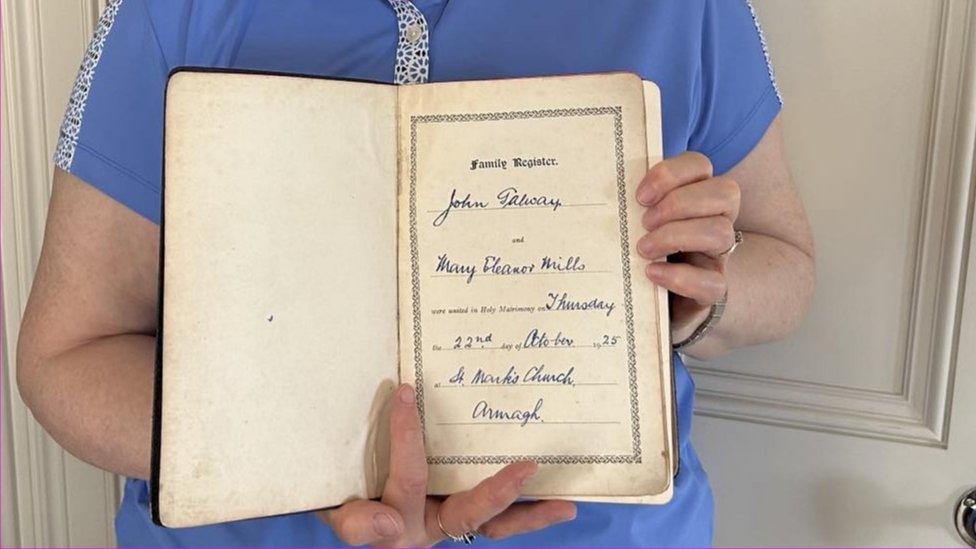 Family Register.
John Galway
and
Mary Eleanor Mills
were united in Holy Matrimony on Thursday
the 22nd. day of October 1925
at St. Mark's Church,
Armagh.